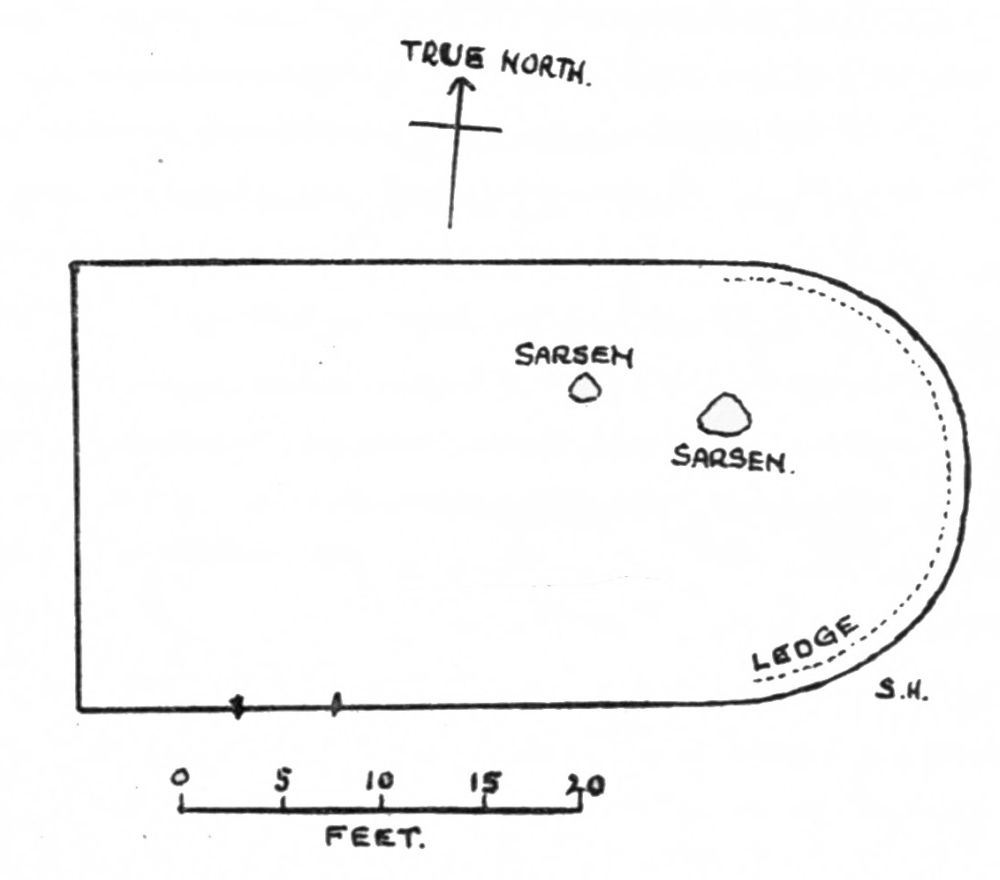 TRUE NORTH.
SARSEN
SARSEN.
LEDGE
S.H.
0 5 10 15 20
FEET.